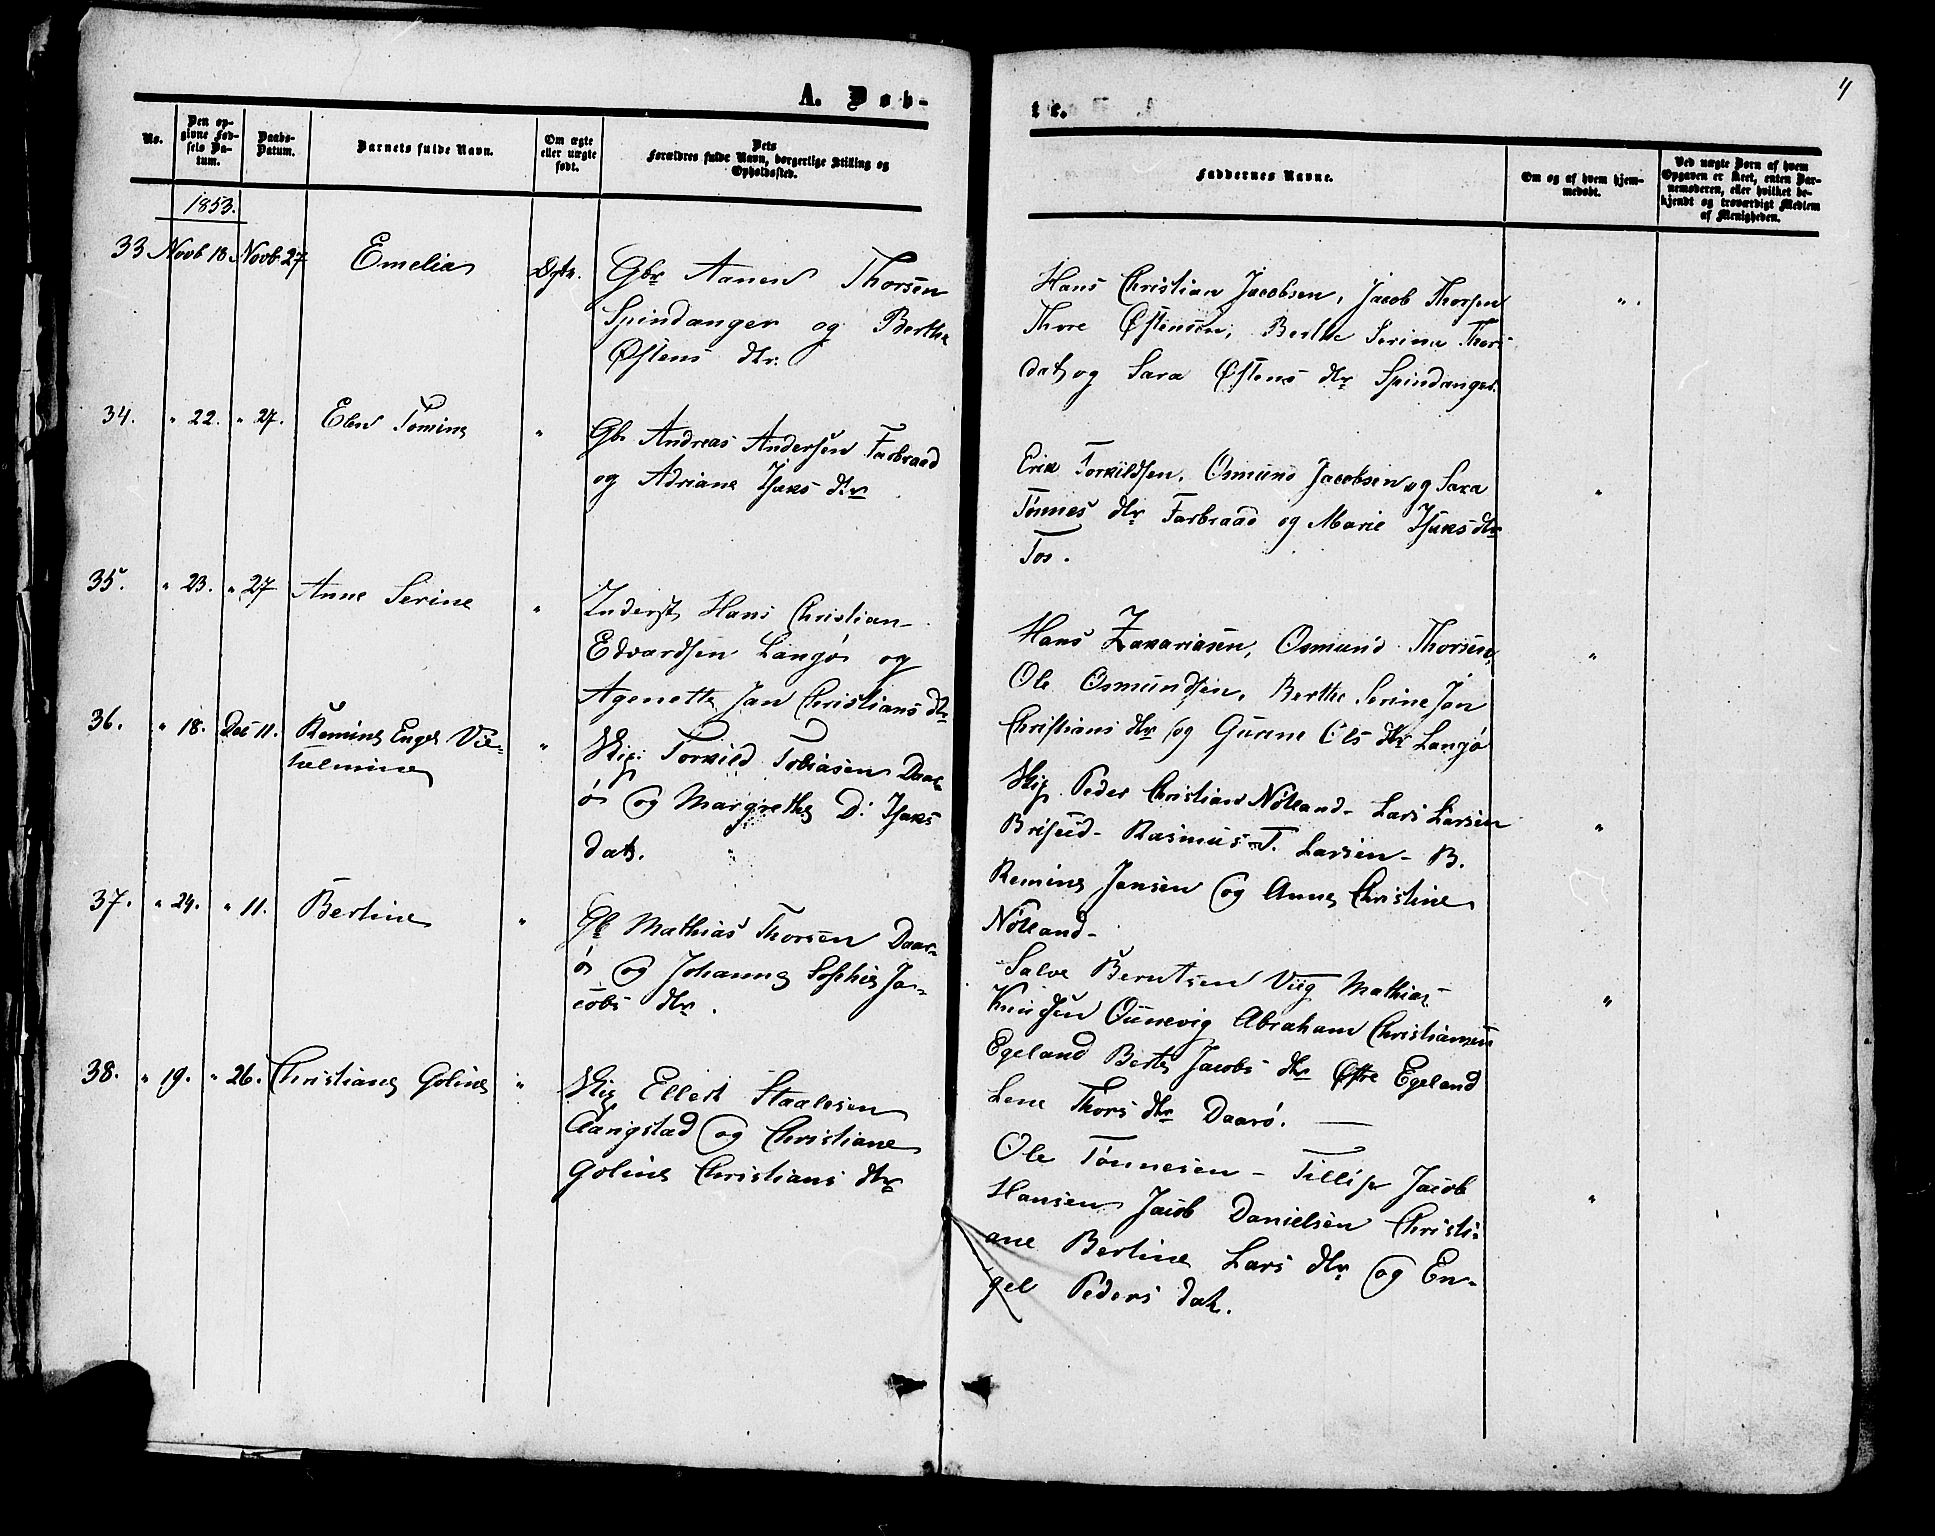 4
A. Døb-
te.
No.
Den op-
givne Fød-
sels Da-
tum.
Daabs-
Datum.
Barnets fulde Navn.
Om ægte
eller uægte
født.
Dets
Forældres fulde Navn, borgerlige Stilling og
Opholdssted.
Faddernes Navne.
Om og af hvem hjem-
medøbt.
Ved uægte Børn af hvem
Opgaven er skeet, enten Bar-
nemoderen, eller hvilket be-
kjendt og troværdigt Medlem
af Menigheden.
1853.
33 Novb 13. Novb. 27 Emelia Ægte. Gbr Aanen Thorsen
Spindanger og Berthe
Østens dtr.
Hans Christian Jacobsen, Jacob Thorsen
Thore Østensen, Berthe Serine Thors
dat og Sara Østens dtr Spindanger.
".
34. " 22. " 27. Elen Tomine " Gb Andreas Andersen Farbraad
og Adriane Isaks dtr.
Erik Torkildsen, Osmund Jacobsen og Sara
Tønnes dtr Farbraad og Marie Isaks dtr
Fos.
"
35. " 23. " 27 Anne Serine " Inderst Hans Christian
Edvardsen Langø og
Agenethe Jan Christians dtr
Hans Zakariasen, Osmund Thorsen,
Ole Osmundsen, Berthe Serine Jan
Christians dtr og Gurine Ols dtr Langø
"
36. " 18. Dec 11. Remine Engel Vil-
helmine " Skip. Torkild Tobiasen Daar-
ø og Margrethe D. Isaks
dat.
Skip Peder Christian Nøtland - Lars Larsen
Briseid - Rasmus T. Larsen - B.
Remine Jansen og Anne Christine
Nøtland -
"
37. " 24. " 11. Bertine " Gb Mathias Thorsen Daar-
ø og Johanne Sophie Ja-
cobs dtr.
Salve Berntsen Viig Mathias
Knudsen Ounevig Abraham Christiansen
Egeland Berte Jacobs dtr Østre Egeland
Lene Thors dtr Daarø. —
"
38. " 19. " 26. Christiane Goline " Skip Ellert Staalesen
Aangstad og Christiane
Goline Christians dtr
Ole Tønnesen - Jacob
Hansen Jacob Danielsen Christi-
ane Bertine Lars dtr og En-
gel Peders dat.
"